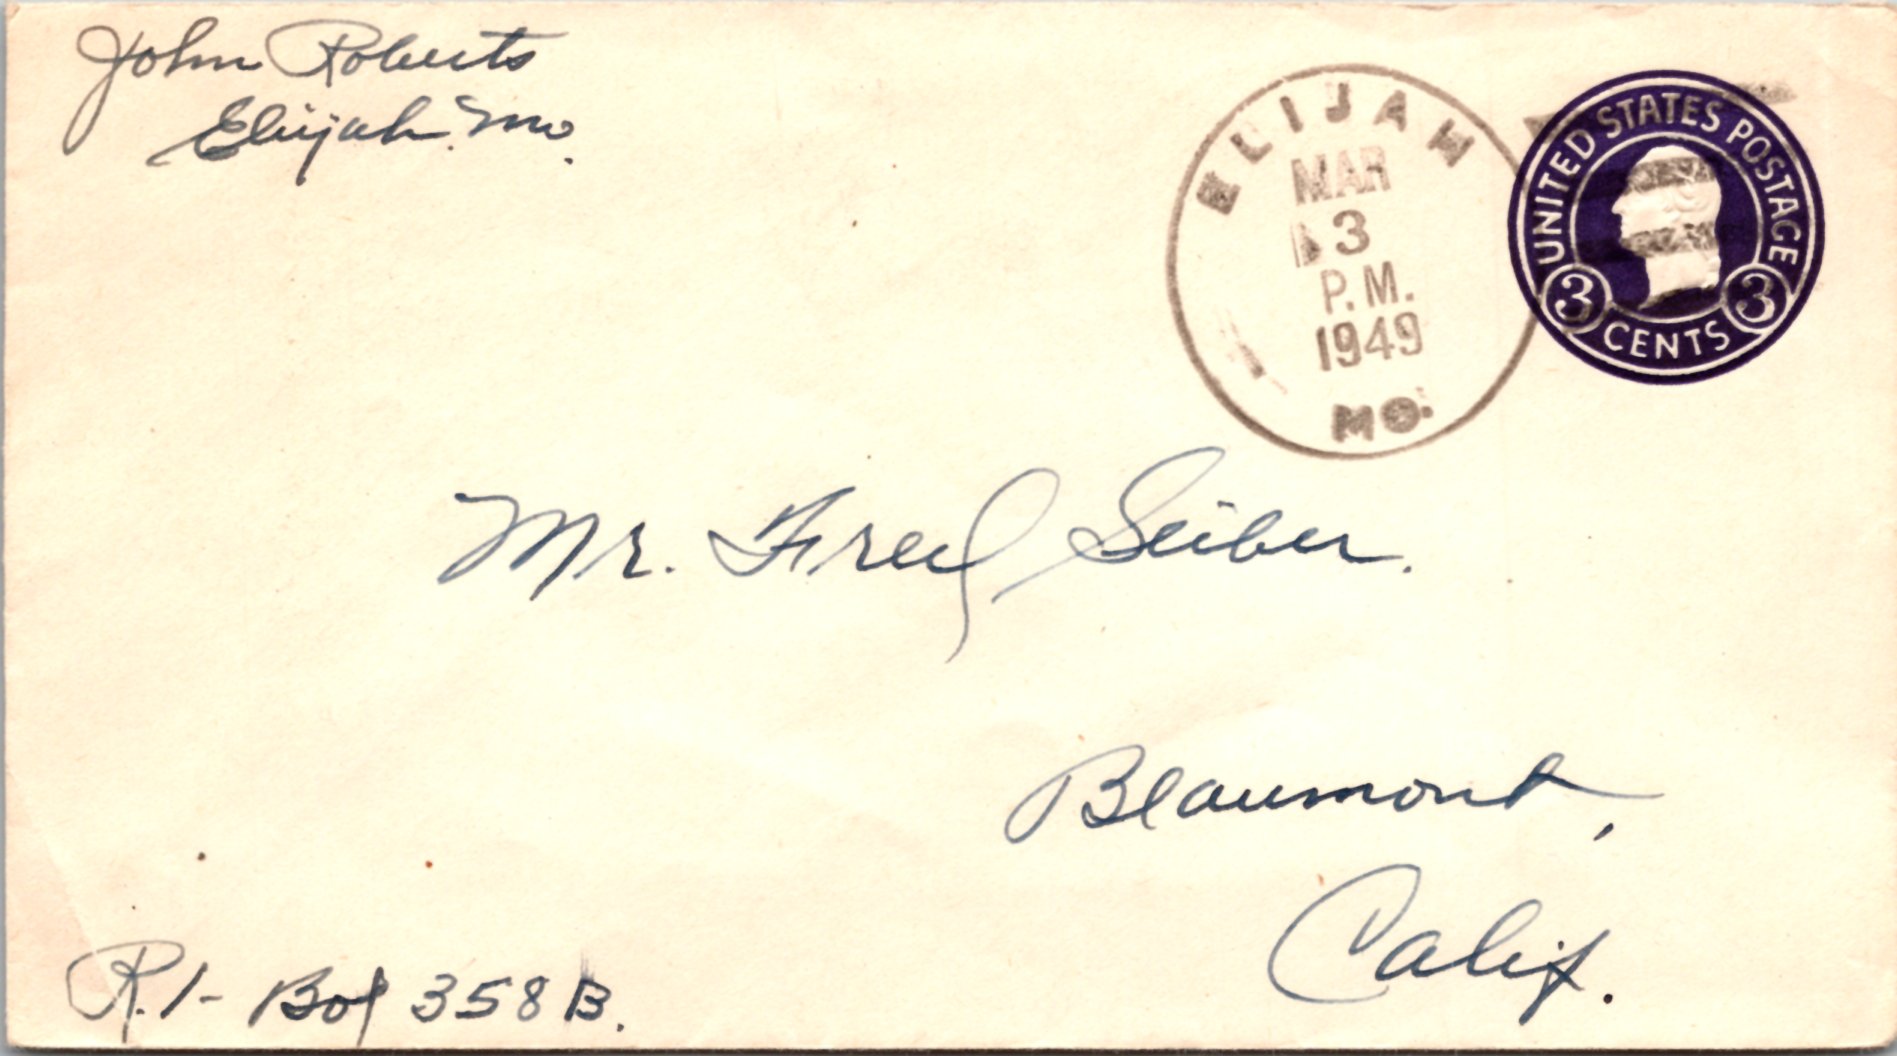 John Roberts
Elijah. Mo.
ELIJAH
MAR
3
P.M.
1949
MO.
UNITED STATES POSTAGE
3 CENTS 3
Mr. Fred Seiber.
Beaumont,
Calif.
R.1- Box 358B.